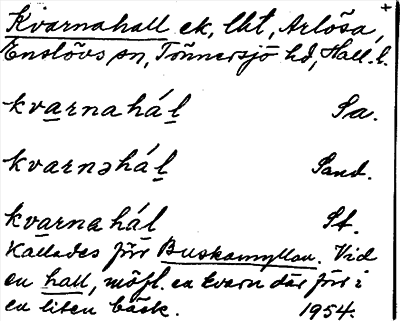 Kvarnahall ek, lht, Arlösa, +
Enslövs sn, Tönnersjö hd, Hall. l.
kvarnahál Sa.
kvarnəhál Sand.
kvarnahál St.
Kallades förr Buskamyllan. Vid
en hall, möjl. en kvarn där förr i
en liten bäck. 1954.